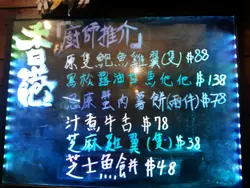 香港
「廚師推介」
原隻鮑魚雞翼(隻) $88
黑松露油甘魚他他 $138
芝麻蟹肉薯餅(兩件) $78
汁煮牛舌 $78
芝麻雞翼(隻) $38
芝士魚餅 $48